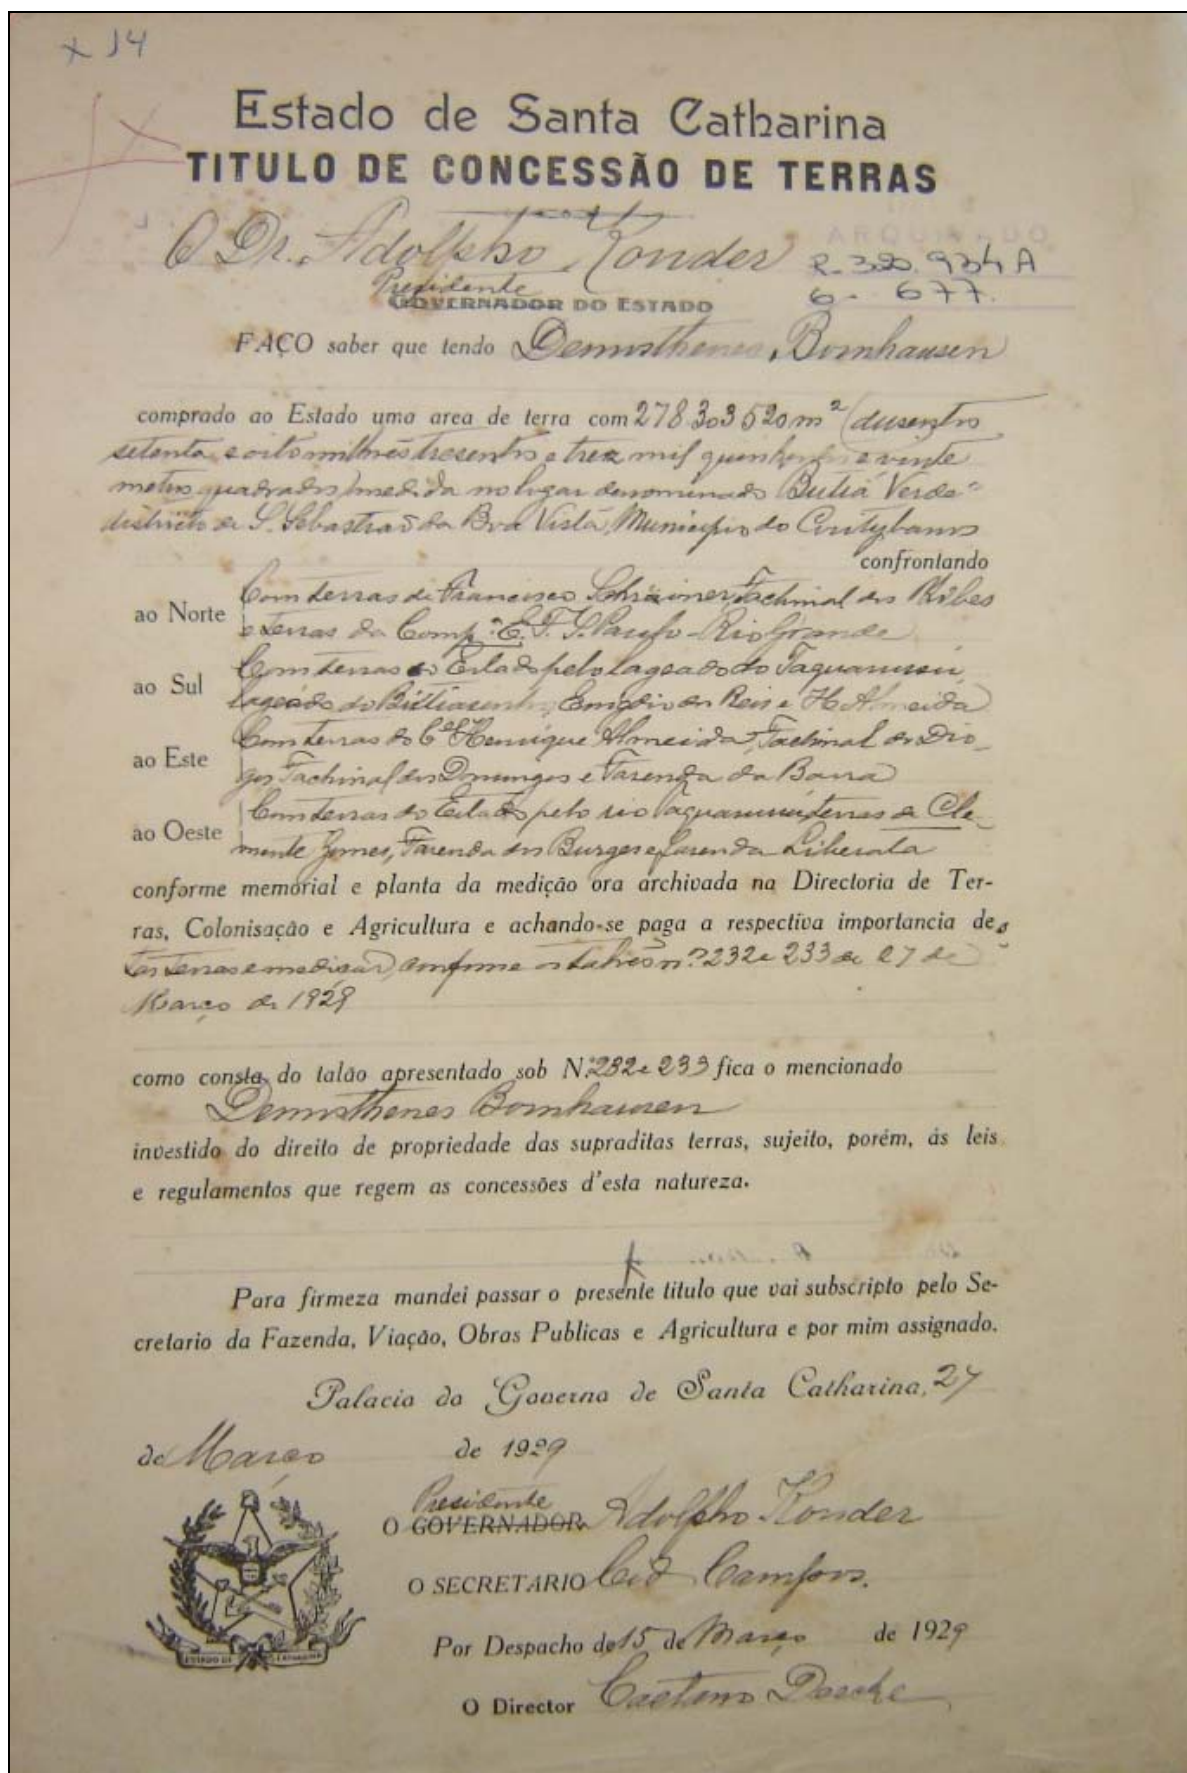 x 14
Estado de Santa Catharina
TITULO DE CONCESSÃO DE TERRAS
ARQUIVADO
O Dr. Adolpho Konder
R. 320.934 A
Presidente
GOVERNADOR DO ESTADO
6- 677.
FAÇO saber que tendo Demosthenes Bornhausen
comprado ao Estado uma area de terra com 278.303520 m² (dusentos
setenta e oito milhões tresentos e tres mil quinhentos e vinte
metros quadrados) medida no logar denominado "Butiá Verde"
districto de S. Sebastião da Boa Vista, Municipio de Coritybanos
confrontando
ao Norte Com terras de Francisco Schreiner, Fachinal dos Ribes
e terras da Comp.ª E. F. S. Paulo-Rio Grande
ao Sul Com terras do Estado pelo lageado do Taquarussú,
lageado do Butiasinho, Emgdio dos Reis e H. Almeida
ao Este Com terras do Cel Henrique Almeida, Fachinal do Dio-
go, Fachinal dos Domingos e Fazenda da Barra
ao Oeste Com terras do Estado pelo rio Taquarussú, terras de Cle-
mente Gomes, Fazenda dos Burges e fazenda Liberata
conforme memorial e planta da medição ora archivada na Directoria de Ter-
ras, Colonisação e Agricultura e achando-se paga a respectiva importancia des
tas terras e medição, conforme os talões nº 232 e 233 de 27 de
Março de 1929
como consta do talão apresentado sob N.º 232 e 233 fica o mencionado
Demosthenes Bornhausen
investido do direito de propriedade das supraditas terras, sujeito, porém, ás leis
e regulamentos que regem as concessões d'esta natureza.
Para firmeza mandei passar o presente titulo que vai subscripto pelo Se-
cretario da Fazenda, Viação, Obras Publicas e Agricultura e por mim assignado.
Palacio do Governo de Santa Catharina, 27
de Março de 1929
Presidente
O GOVERNADOR Adolpho Konder
O SECRETARIO Cid Campos.
Por Despacho de 15 de Março de 1929
ESTADO DE S. CATHARINA
O Director Caetano Deeke